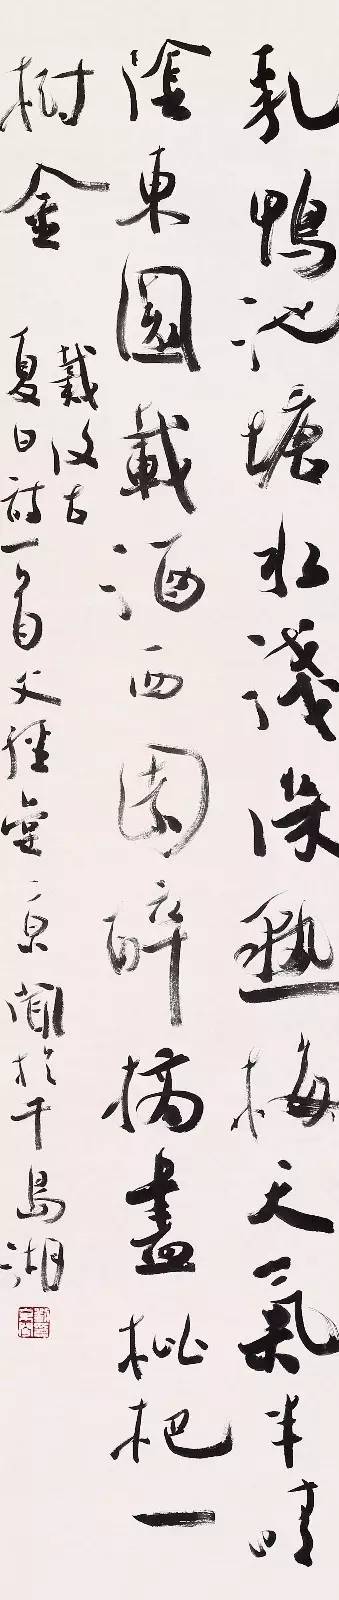 乳鴨池塘水淺深熟梅天氣半晴
陰東園載酒西園醉摘盡枇杷一
樹金
戴復古
夏日詩一首文經堂京聞於千島湖